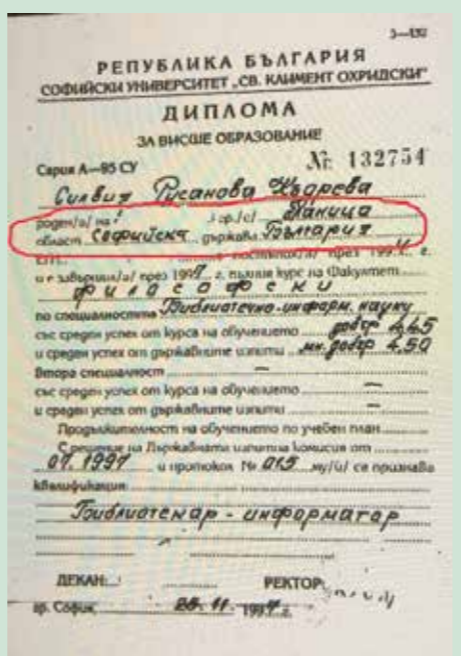 3—132
РЕПУБЛИКА БЪЛГАРИЯ
СОФИЙСКИ УНИВЕРСИТЕТ „СВ. КЛИМЕНТ ОХРИДСКИ“
ДИПЛОМА
ЗА ВИСШЕ ОБРАЗОВАНИЕ
Серия А—95 СУ № 132754
Силвия Русанова Къдрева
роден/а/ на гр./с/ Паница
област Софийска държава България
ЕГН постъпил/а/ през 199 г.
и е завършил/а/ през 1997 г. пълния курс на Факултет
философски
по специалността Библиотечно-информ. науки
със среден успех от курса на обучението добър 4,45
и среден успех от държавните изпити мн. добър 4,50
Втора специалност —
със среден успех от курса на обучението —
и среден успех от държавните изпити —
Продължителност на обучението по учебен план
С решение на Държавната изпитна комисия от
07. 1997 и протокол № 015 му/ѝ/ се признава
квалификация
Библиотекар - информатор
ДЕКАН: РЕКТОР:
гр. София, 25. 11. 1997 г.